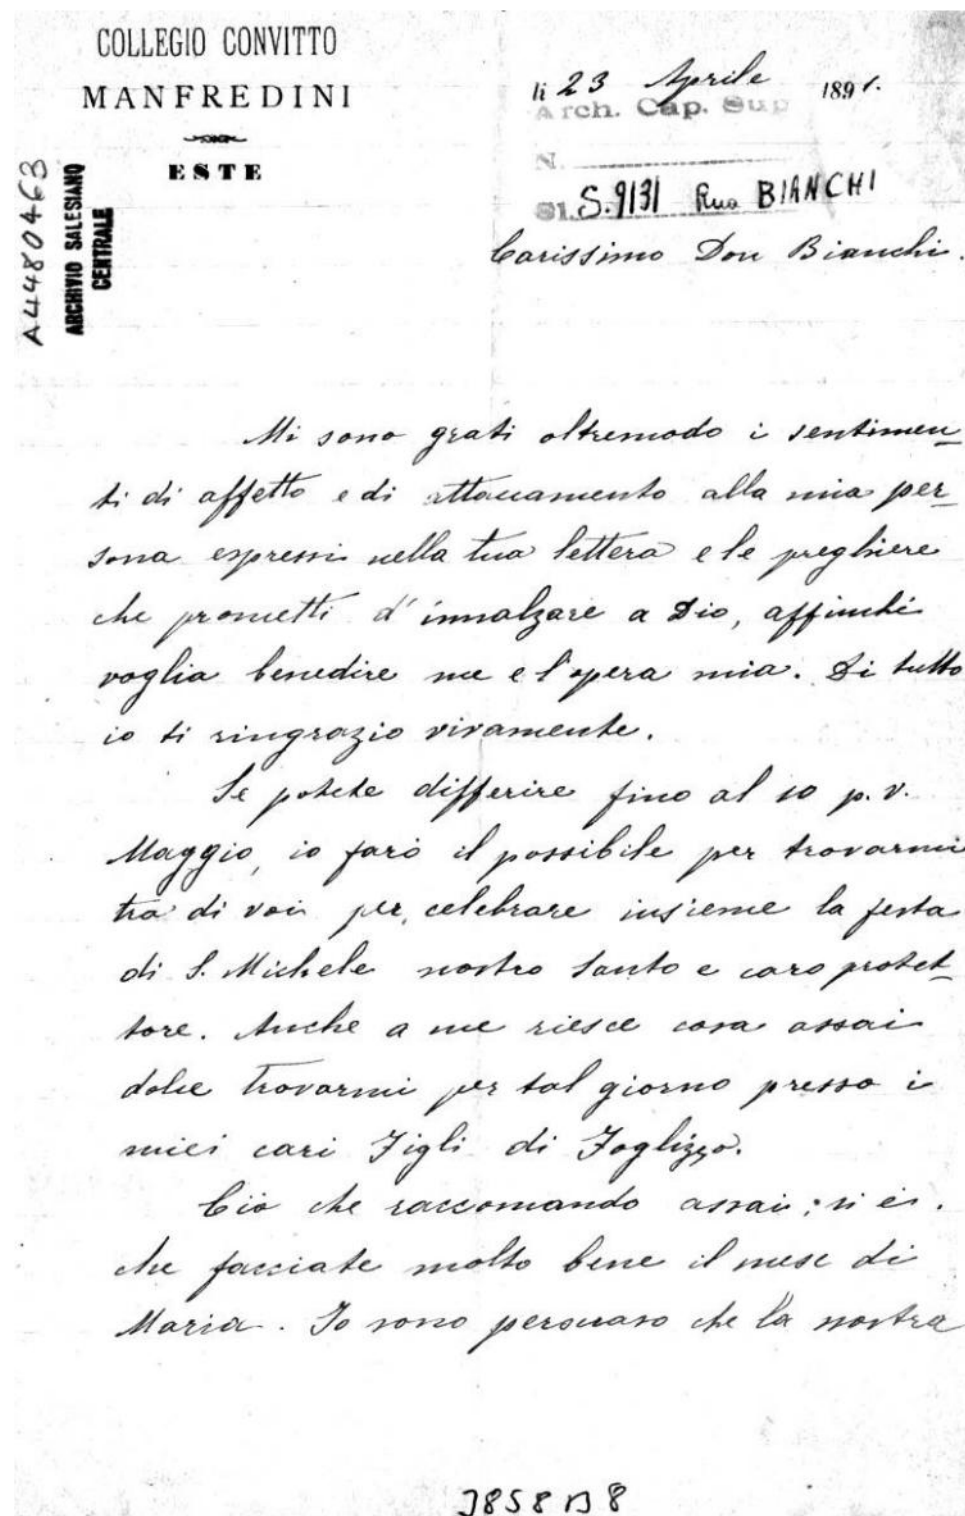 COLLEGIO CONVITTO
MANFREDINI
ESTE
li 23 Aprile 1891.
Arch. Cap. Sup
N.
S. 9131 Rua BIANCHI
A4480463
ARCHIVIO SALESIANO
CENTRALE
Carissimo Don Bianchi.
Mi sono grati oltremodo i sentimen-
ti di affetto e di attaccamento alla mia per-
sona espressi nella tua lettera e le preghiere
che prometti d'innalzare a Dio, affinchè
voglia benedire me e l'opera mia. Di tutto
io ti ringrazio vivamente.
Se potete differire fino al 10 p. v.
Maggio, io farò il possibile per trovarmi
tra di voi per celebrare insieme la festa
di S. Michele nostro Santo e caro protet-
tore. Anche a me riesce cosa assai
dolce trovarmi per tal giorno presso i
miei cari Figli di Foglizzo.
Ciò che raccomando assai; si è.
che facciate molto bene il mese di
Maria. Io sono persuaso che la nostra
3858 B 8